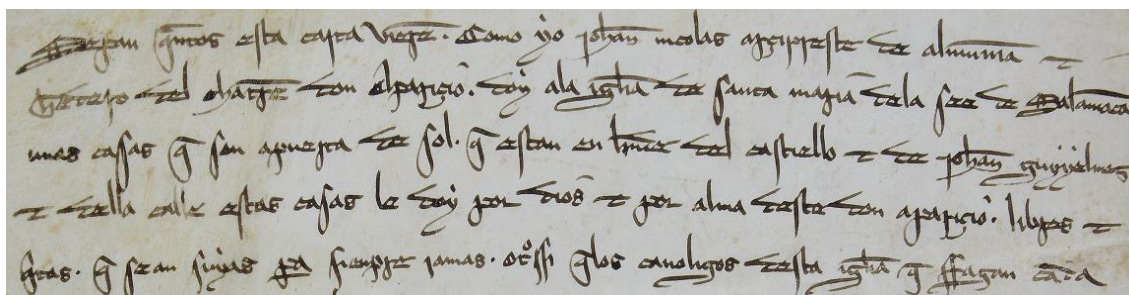 Sepan q̃ntos esta carta vierẽ. Como yo Johañ nicolas arçipreste de almunnia τ
del don Aparicio. doy ala iglia de Santa maria dela see de Salamãca
unas casas q̃ son apuerta de sol. q̃ estan en linde del castiello τ de Johañ guiyelmos
τ della calle estas casas le doy por dios τ por alma deste don aparicio. libres τ
q̃tas. q̃ sean suyas pa sienpre jamas. otossi q̃los canoligos desta iglia q̃ ffagan cada